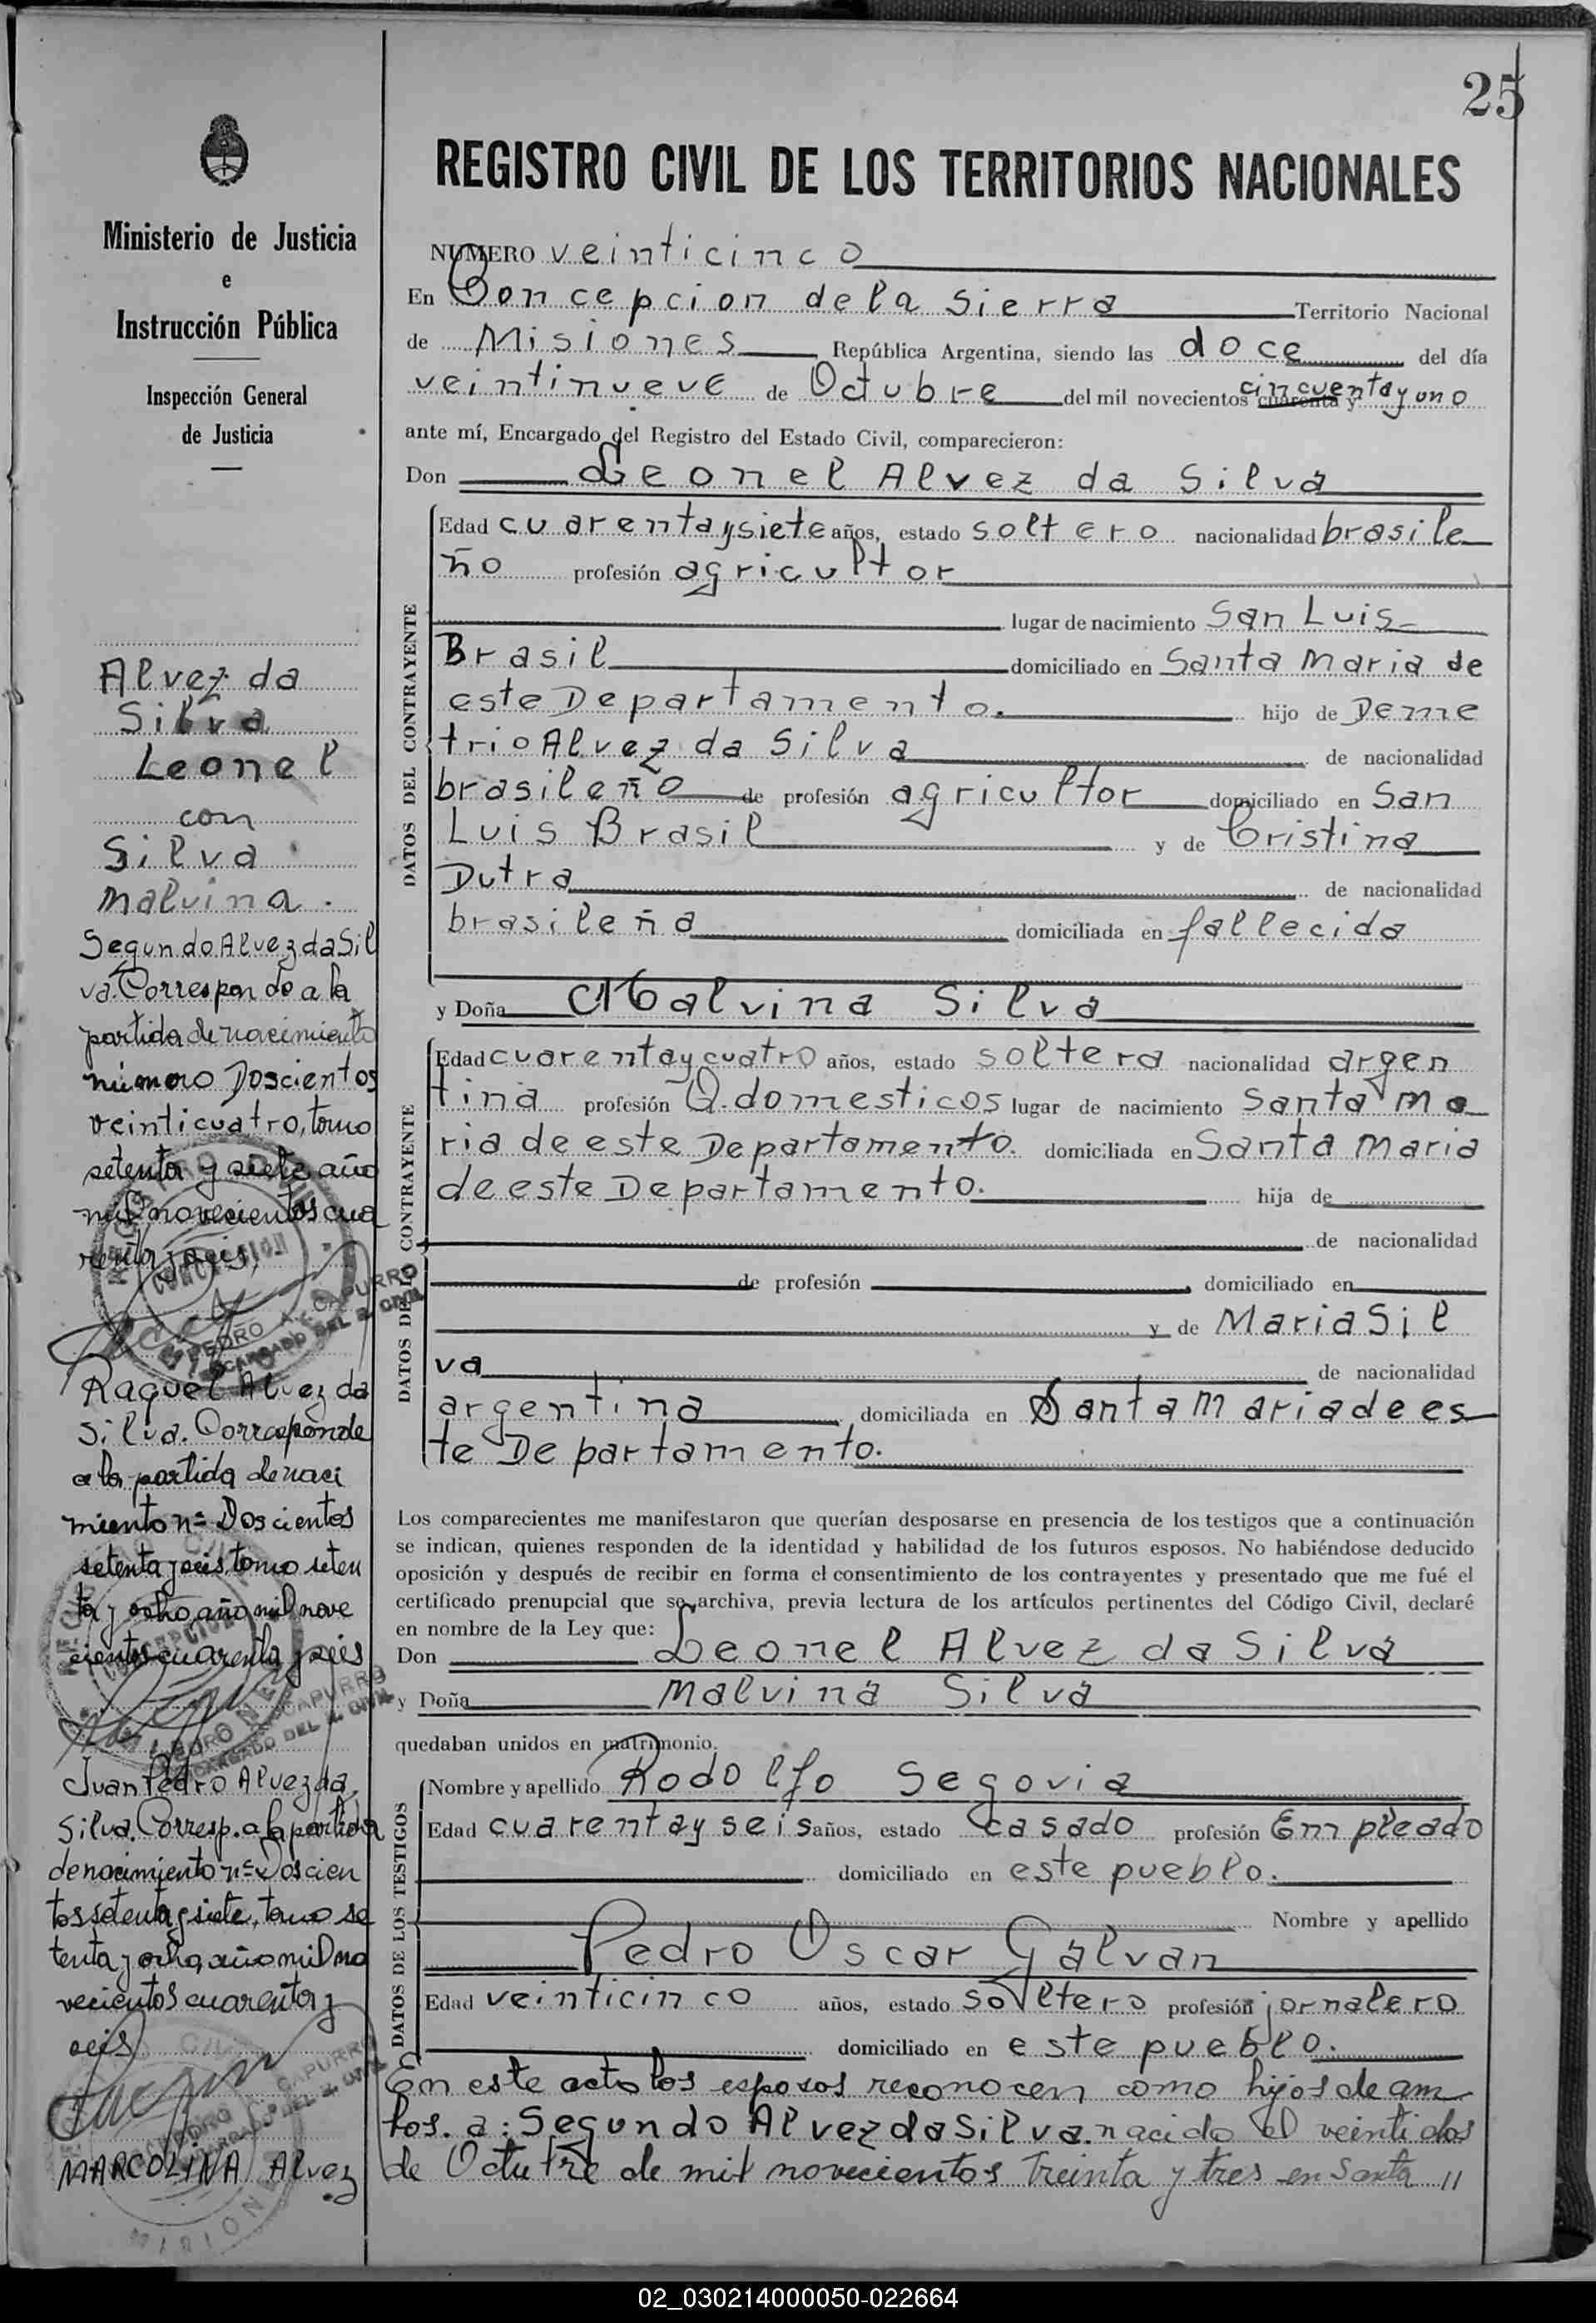 25
REGISTRO CIVIL DE LOS TERRITORIOS NACIONALES
Ministerio de Justicia
e
Instrucción Pública
Inspección General
de Justicia
Alvez da
Silva
Leonel
con
Silva
Malvina.
Segundo Alvez da Sil
va. Corresponde a la
partida de nacimiento
número Doscientos
veinticuatro, tomo
setenta y siete año
mil novecientos cua
renta y seis,
PEDRO A. CAPURRO
ENCARGADO DEL R. CIVIL
Raquel Alvez da
Silva. Corresponde
a la partida de naci
miento nº Doscientos
setenta y seis, tomo seten
ta y ocho, año mil nove
cientos cuarenta y seis
PEDRO A. CAPURRO
ENCARGADO DEL R. CIVIL
Juan Pedro Alvez da
Silva. Corresp. a la partida
de nacimiento nº Doscien
tos setenta y siete, tomo se
tenta y ocho, año mil no
vecientos cuarenta y
seis
PEDRO A. CAPURRO
ENCARGADO DEL R. CIVIL
MARCOLINA Alvez
NUMERO veinticinco
En Concepcion de la Sierra Territorio Nacional
de Misiones República Argentina, siendo las doce del día
veintinueve de Octubre del mil novecientos cuarenta y cincuenta y uno
ante mí, Encargado del Registro del Estado Civil, comparecieron:
Don Leonel Alvez da Silva
DATOS DEL CONTRAYENTE
Edad cuarenta y siete años, estado soltero nacionalidad brasile
ño profesión agricultor
lugar de nacimiento San Luis
Brasil domiciliado en Santa Maria de
este Departamento. hijo de Deme
trio Alvez da Silva de nacionalidad
brasileño de profesión agricultor domiciliado en San
Luis Brasil y de Cristina
Dutra de nacionalidad
brasileña domiciliada en fallecida
y Doña Malvina Silva
DATOS DE LA CONTRAYENTE
Edad cuarenta y cuatro años, estado soltera nacionalidad argen
tina profesión Q. domesticos lugar de nacimiento Santa Ma
ria de este Departamento. domiciliada en Santa Maria
de este Departamento. hija de
de nacionalidad
de profesión domiciliado en
y de Maria Sil
va de nacionalidad
argentina domiciliada en Santa Maria de es
te Departamento.
Los comparecientes me manifestaron que querían desposarse en presencia de los testigos que a continuación
se indican, quienes responden de la identidad y habilidad de los futuros esposos. No habiéndose deducido
oposición y después de recibir en forma el consentimiento de los contrayentes y presentado que me fué el
certificado prenupcial que se archiva, previa lectura de los artículos pertinentes del Código Civil, declaré
en nombre de la Ley que:
Don Leonel Alvez da Silva
y Doña Malvina Silva
quedaban unidos en matrimonio.
DATOS DE LOS TESTIGOS
Nombre y apellido Rodolfo Segovia
Edad cuarenta y seis años, estado casado profesión Empleado
domiciliado en este pueblo.
Nombre y apellido
Pedro Oscar Galvan
Edad veinticinco años, estado soltero profesión jornalero
domiciliado en este pueblo.
En este acto los esposos reconocen como hijos de am
bos. a: Segundo Alvez da Silva. nacido el veintidos
de Octubre de mil novecientos treinta y tres en Santa //
02_030214000050-022664